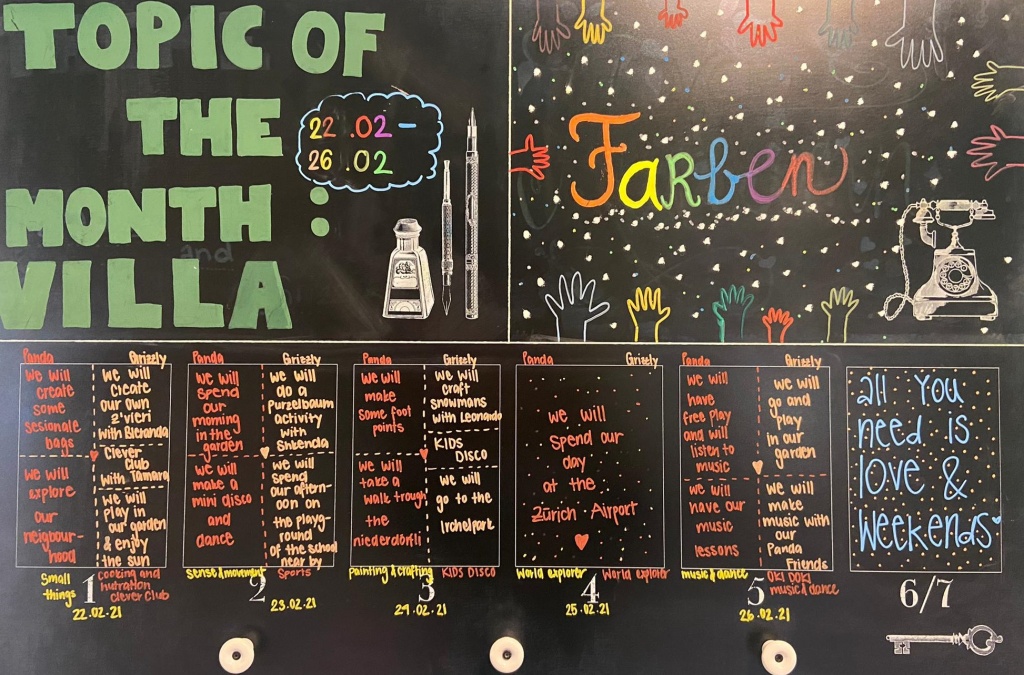 TOPIC OF
THE
MONTH :
VILLA
and
22.02 –
26.02
Farben
Panda
we will
create
some
sesionale
bags
we will
explore
our
neigbour-
hood
Grizzly
we will
create
our own
z'vieri
with Bleranda
Clever
Club
with Tamara
we will
play in
our garden
& enjoy
the sun
Small
things
1
cooking and
nutration
clever Club
22.02.21
Panda
we will
spend
our
morning
in the
garden
we will
make a
mini disco
and
dance
Grizzly
we will
do a
Purzelbaum
activity
with
Shkenda
we will
spend
our aftern-
oon on
the play-
round
of the school
near by
sense & movement
2
Sports
23.02.21
Panda
we will
make
some foot
points
we will
take a
walk trough
the
niederdörfli
Grizzly
we will
craft
snowmans
with Leonardo
KIDS
DISCO
we will
go to the
Irchelpark
Painting & crafting
3
KIDS DISCO
24.02.21
Panda
Grizzly
we will
spend our
day
at the
Zürich Airport
World explorer
4
World explorer
25.02.21
Panda
we will
have
free play
and will
listen to
music
we will
have our
music
lessons
Grizzly
we will
go and
play
in our
garden
we will
make
music with
our
Panda
Friends
music & dance
5
OKI DOKI
music & dance
26.02.21
all you
need is
love &
weekends
6/7